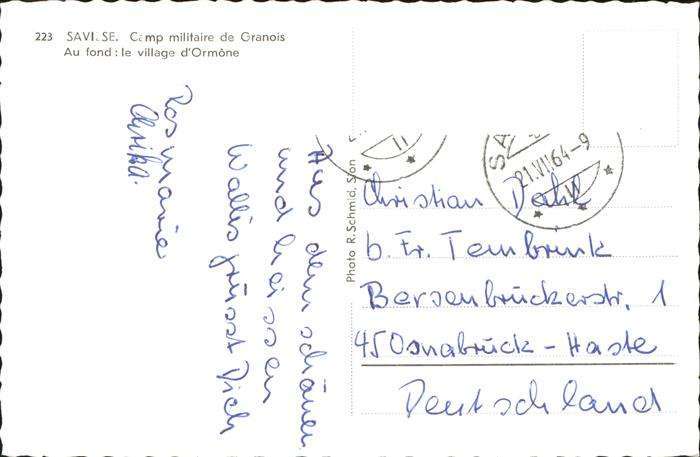 223 SAVI.SE. Camp militaire de Granois
Au fond : le village d'Ormône
Aus dem schönen
und heissen
Wallis grüsst Dich
Rosmarie
Photo R. Schmid, Sion
SA
21.VII 64-9
Christian Dahl
b. Fr. Tembrink
Bersenbrückerstr. 1
45 Osnabrück - Haste
Deutschland